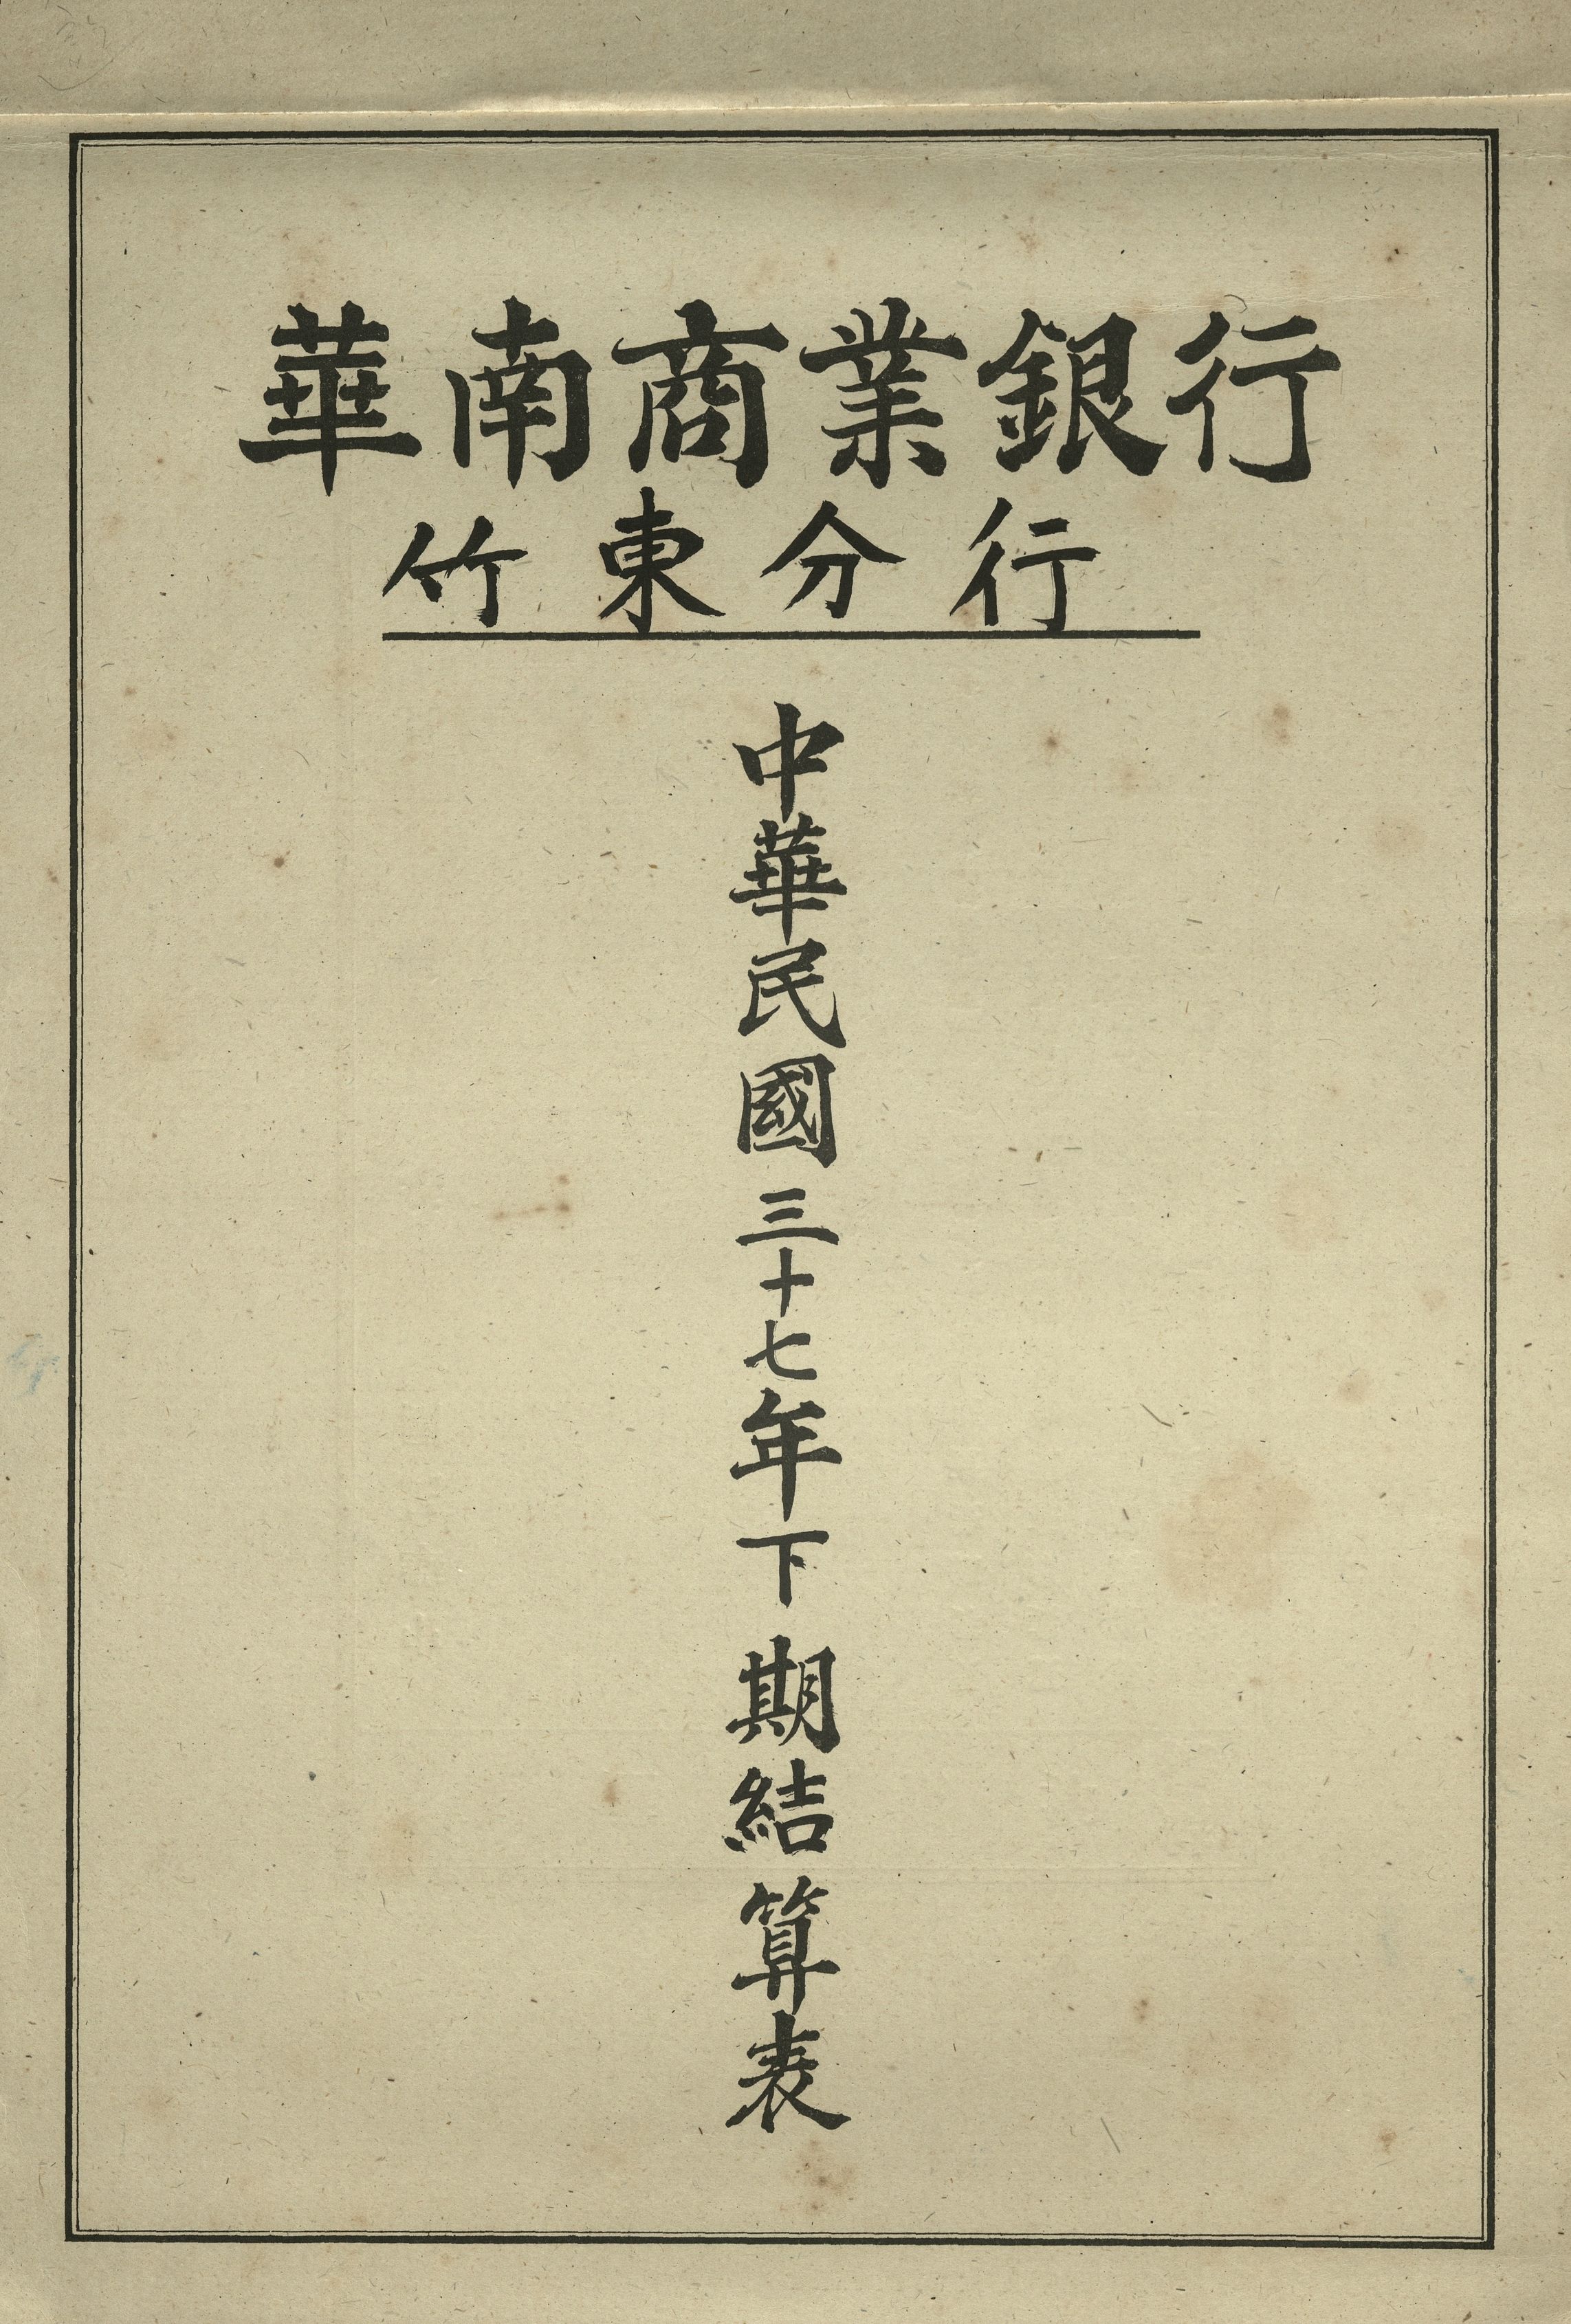 華南商業銀行
竹東分行
中華民國三十七年下期結算表